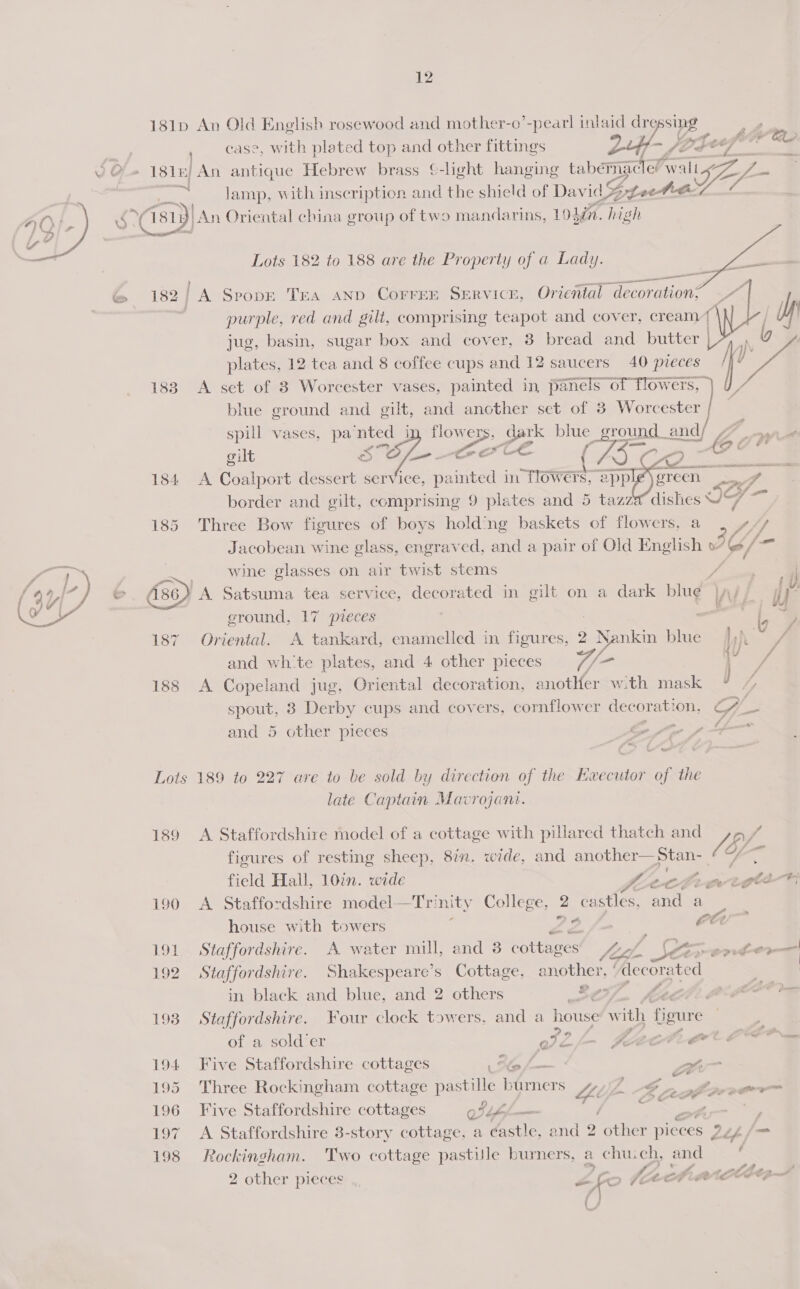 12
181D An Old English rosewood and mother-o'-pearl inlaid dressing
case, with plated top and other fittings
181E An antique Hebrew brass 8-light hanging tabernacle wall
lamp, with inscription and the shield of David
181F An Oriental china group of two mandarins, 19½in. high
Lots 182 to 188 are the Property of a Lady.
182 A SPODE TEA AND COFFEE SERVICE, Oriental decoration,
purple, red and gilt, comprising teapot and cover, cream
jug, basin, sugar box and cover, 3 bread and butter
plates, 12 tea and 8 coffee cups and 12 saucers 40 pieces
183 A set of 3 Worcester vases, painted in panels of flowers,
blue ground and gilt, and another set of 3 Worcester
spill vases, painted in flowers, dark blue ground and
gilt
184 A Coalport dessert service, painted in flowers, apple green
border and gilt, comprising 9 plates and 5 tazza dishes
185 Three Bow figures of boys holding baskets of flowers, a
Jacobean wine glass, engraved, and a pair of Old English
wine glasses on air twist stems
186 A Satsuma tea service, decorated in gilt on a dark blue
ground, 17 pieces
187 Oriental. A tankard, enamelled in figures, 2 Nankin blue
and white plates, and 4 other pieces
188 A Copeland jug, Oriental decoration, another with mask
spout, 3 Derby cups and covers, cornflower decoration,
and 5 other pieces
Lots 189 to 227 are to be sold by direction of the Executor of the
late Captain Mavrojani.
189 A Staffordshire model of a cottage with pillared thatch and
figures of resting sheep, 8in. wide, and another—Stan-
field Hall, 10in. wide
190 A Staffordshire model—Trinity College, 2 castles, and a
house with towers
191 Staffordshire. A water mill, and 3 cottages
192 Staffordshire. Shakespeare's Cottage, another, decorated
in black and blue, and 2 others
193 Staffordshire. Four clock towers, and a house with figure
of a soldier
194 Five Staffordshire cottages
195 Three Rockingham cottage pastille burners
196 Five Staffordshire cottages
197 A Staffordshire 3-story cottage, a castle, and 2 other pieces
198 Rockingham. Two cottage pastille burners, a church, and
2 other pieces